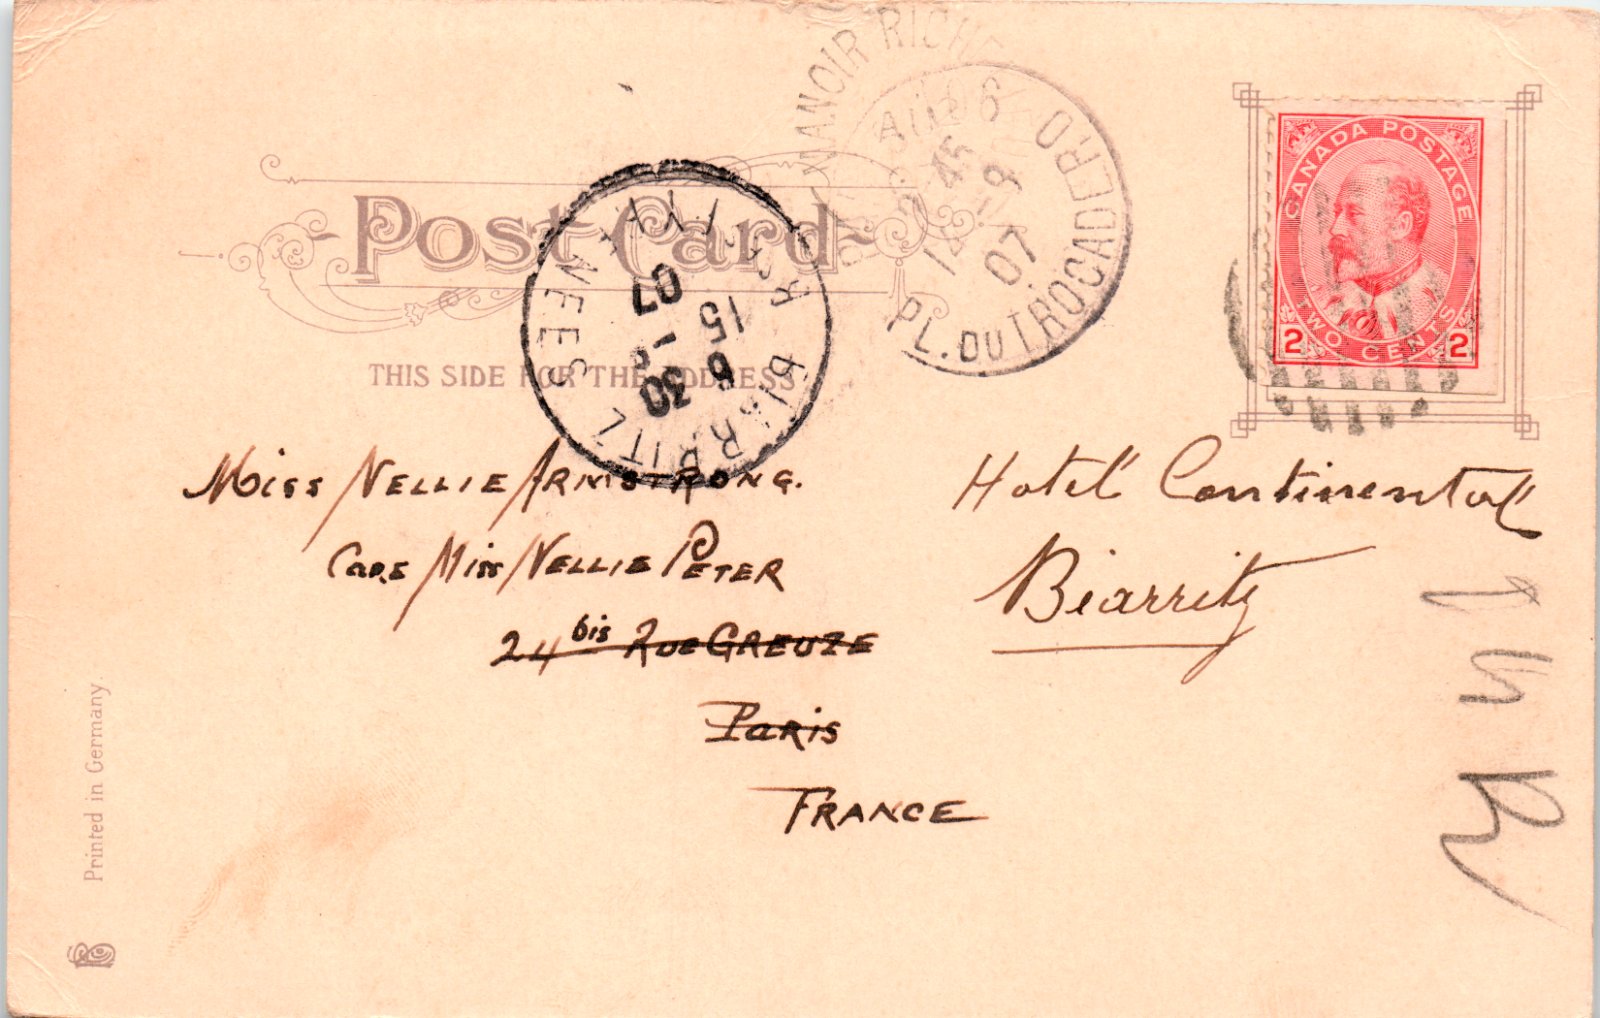 MANOIR RICHE
AU 6
PL. DU TROCADERO
12 45
19 - 8
07
Post Card
CANADA POSTAGE
2 TWO CENTS 2
BIARRITZ
PYRENEES
6 30
15
07
THIS SIDE FOR THE ADDRESS
Miss Nellie Armstrong.
Care Miss Nellie Peter
24 bis Rue Greuze
Paris
France
Hotel Continental
Biarritz
Printed in Germany.